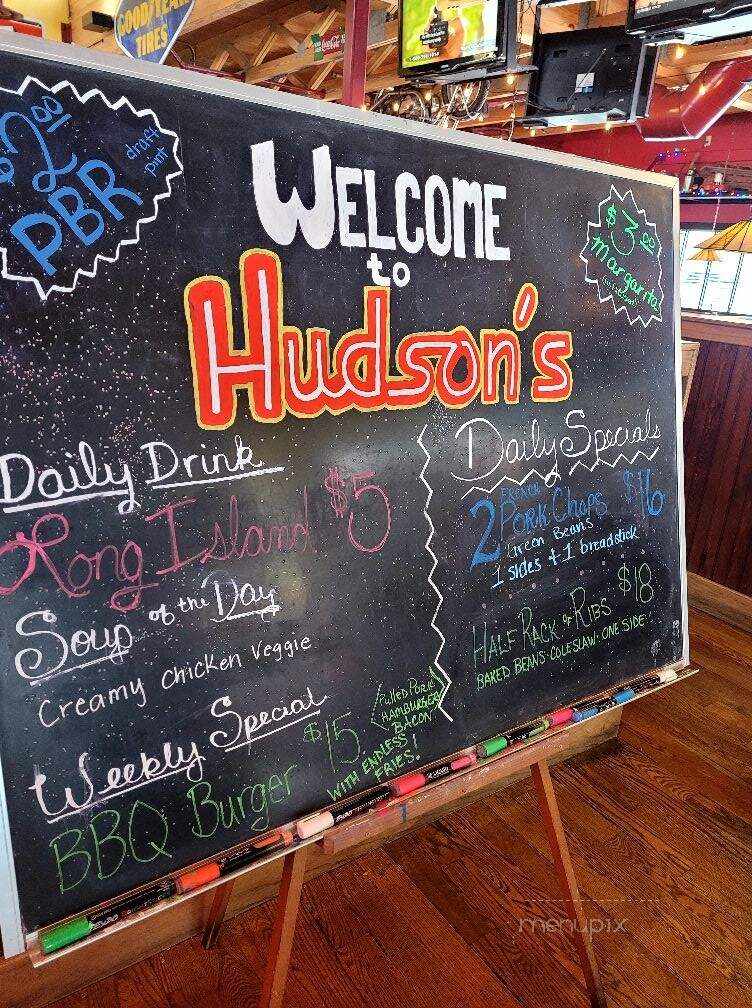 GOODYEAR
TIRES
Coca-Cola
$2.00
PBR
draft
pint
WELCOME
to
Hudson's
$3.00
margarita
Daily Drink
Long Island $5
Soup of the Day
Creamy chicken Veggie
Weekly Special
BBQ Burger $15.
Pulled Pork
HAMBURGER
BACON
WITH ENDLESS
FRIES!
Daily Specials
2 FRENCH
PORK Chops $16
Green Beans
1 sides + 1 breadstick
HALF RACK of RIBS $18
BAKED BEANS·COLESLAW·ONE SIDE
menupix